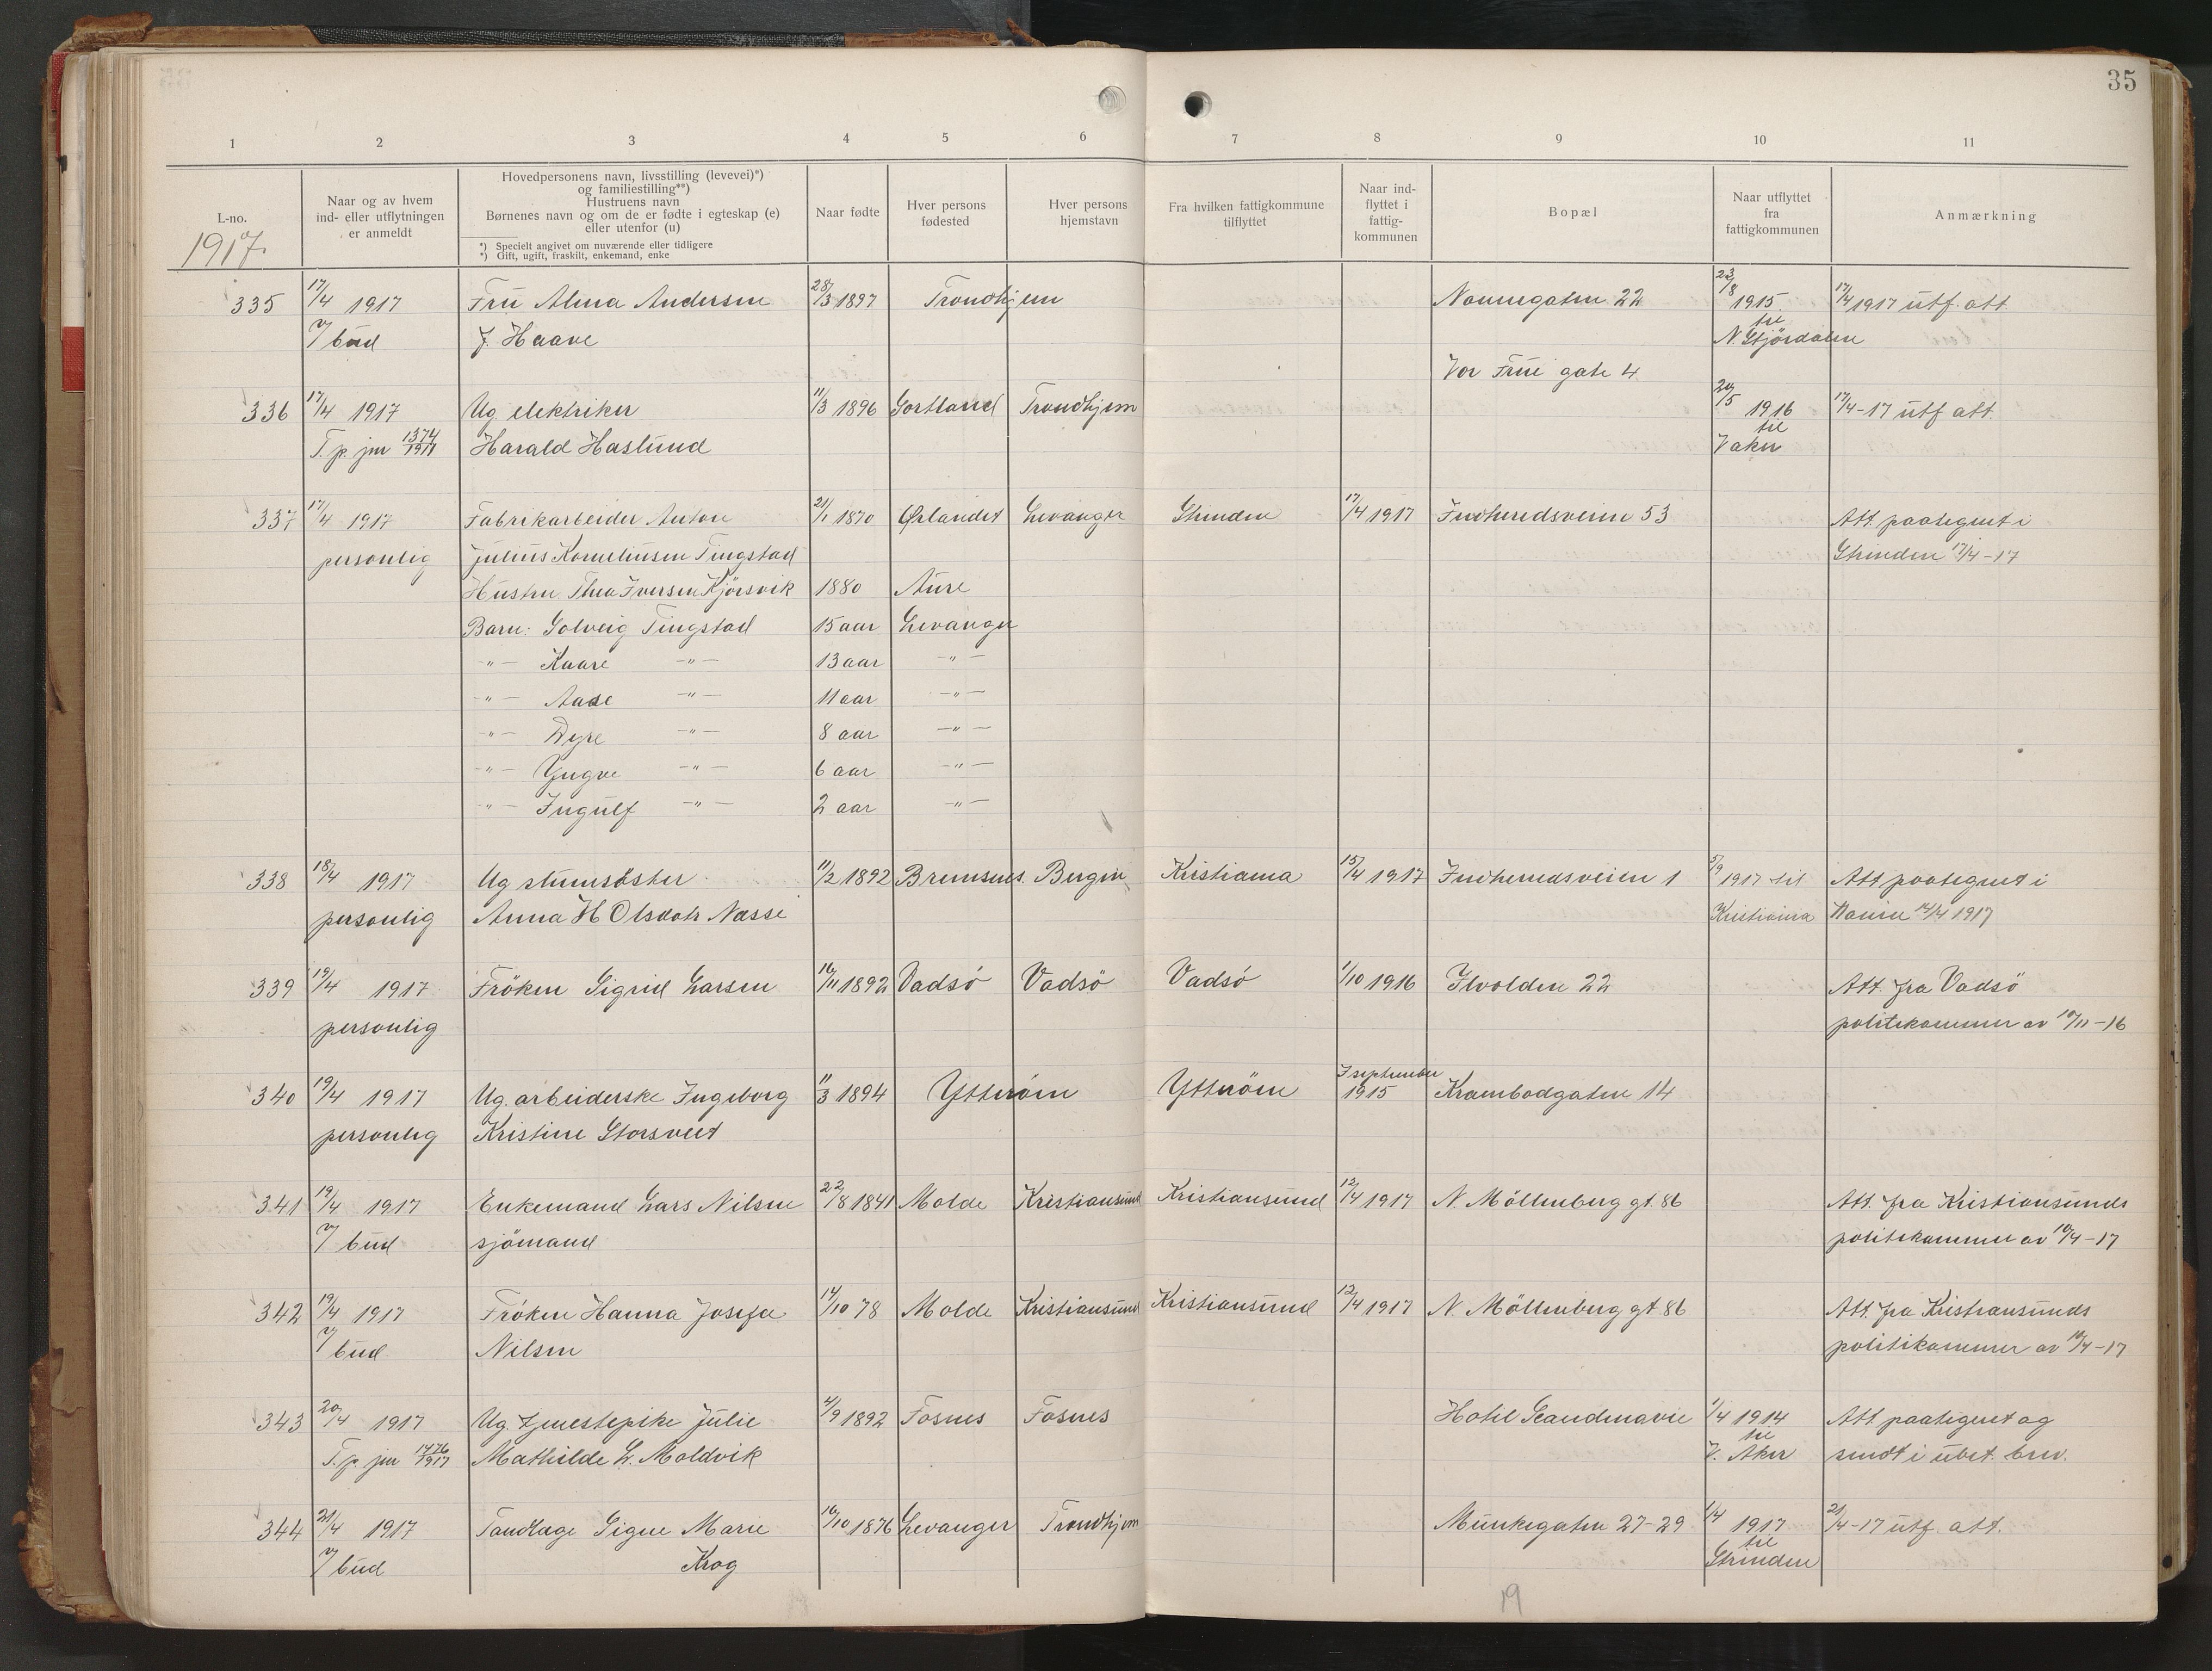 35
1 2 3 4 5 6 7 8 9 10 11
L-no.
Naar og av hvem
ind- eller utflytningen
er anmeldt
Hovedpersonens navn, livsstilling (levevei)*)
og familiestilling**)
Hustruens navn
Børnenes navn og om de er fødte i egteskap (e)
eller utenfor (u)
*) Specielt angivet om nuværende eller tidligere
*) Gift, ugift, fraskilt, enkemand, enke
Naar fødte
Hver persons
fødested
Hver persons
hjemstavn
Fra hvilken fattigkommune
tilflyttet
Naar ind-
flyttet i
fattig-
kommunen
Bopæl
Naar utflyttet
fra
fattigkommunen
Anmærkning
1917.
335 17/4 1917 Fru Alma Andersen 28/3 1897 Trondhjem Nonnegaten 22 23/8 1915 17/4 1917 utf. att.
v/ bud J. Haave til N. Stjördalen
Vor Frue gate 4
336 17/4 1917 Ug elektriker 11/3 1896 Sortland Trondhjem 20/5 1916 17/4-17 utf att.
T. p. jnr 1374/1917 Harald Haslund til Vaker
337 17/4 1917 Fabrikarbeider Anton 21/1 1870 Ørlandet Levanger Strinden 17/4 1917 Indherredsveien 53 Att. paategnet i
personlig Julius Korneliusen Tingstad Strinden 17/4-17
Hustru Thea Iversen Kjörsvik 1880 Aure
Barn: Solveig Tingstad 15 aar Levanger
-"- Kaare -"- 13 aar -"-
-"- Aase -"- 11 aar -"-
-"- Dyre -"- 8 aar -"-
-"- Yngve -"- 6 aar -"-
-"- Ingulf -"- 2 aar -"-
338 18/4 1917 Ug 11/2 1892 Bremsnes. Bergen Kristiania 15/4 1917 Indherredsveien 1 5/9 1917 til Att paategnet i
personlig Anna H Olsdatr Næsse Kristiania 1917
339 19/4 1917 Fröken Sigrid Larsen 16/11 1892 Vadsö Vadsö Vadsö 1/10 1916 Ilvolden 22 Att. fra Vadsö
personlig politikammer av 10/11-16
340 19/4 1917 Ug. arbeiderske Ingeborg 11/3 1894 Ytterøen Ytterøen I september 1915 Krambodgaten 14
personlig Kristine Storsveet
341 19/4 1917 Enkemand Lars Nilsen 22/8 1841 Molde Kristiansund Kristiansund 12/4 1917 N. Möllenberg gt. 86 Att. fra Kristiansunds
v/ bud sjömand politikammer av 10/4-17
342 19/4 1917 Fröken Hanna Josefa 14/10 78 Molde Kristiansund Kristiansund 12/4 1917 N. Möllenberg gt. 86 Att. fra Kristiansunds
v/ bud Nilsen politikammer av 10/4-17
343 20/4 1917 Ug. tjenestepike Julie 4/9 1892 Fosnes Fosnes Hotel Scandinavie 1/4 1914 Att paategnet og
T. p. jnr 1476/1917 Mathilde L. Moldvik til V. Aker sendt i ubet. brev.
344 21/4 1917 Tandlæge Signe Marie 16/10 1876 Levanger Trondhjem Munkegaten 27-29 1/4 1917 21/4-17 utf. att.
v/ bud Krog til Strinden
19